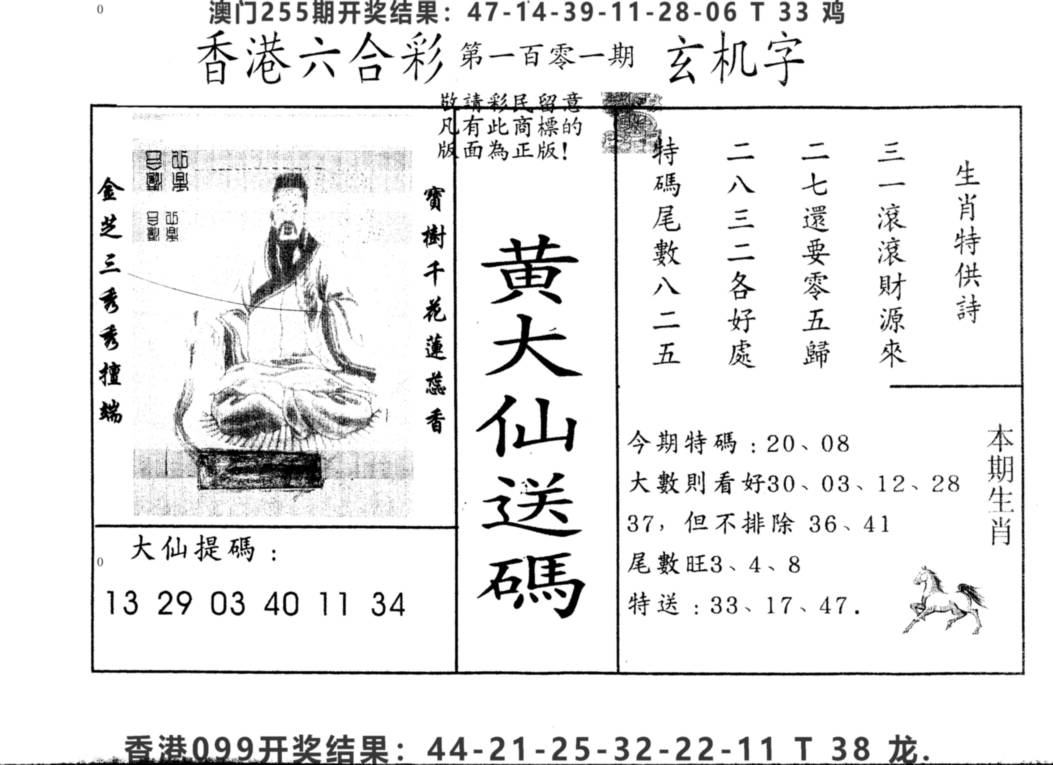 澳门255期开奖结果：47-14-39-11-28-06 T 33 鸡
香港六合彩 第一百零一期 玄机字
敬請彩民留意
凡有此商標的
版面為正版！
寶樹千花蓮蕊香
金芝三秀秀檀端
黄大仙送碼
生肖特供詩
三一滾滾財源來
二七還要零五歸
二八三二各好處
特碼尾數八二五
大仙提碼：
13 29 03 40 11 34
本期生肖
今期特碼：20、08
大數則看好30、03、12、28
37，但不排除 36、41
尾數旺3、4、8
特送：33、17、47.
香港099开奖结果：44-21-25-32-22-11 T 38 龙.